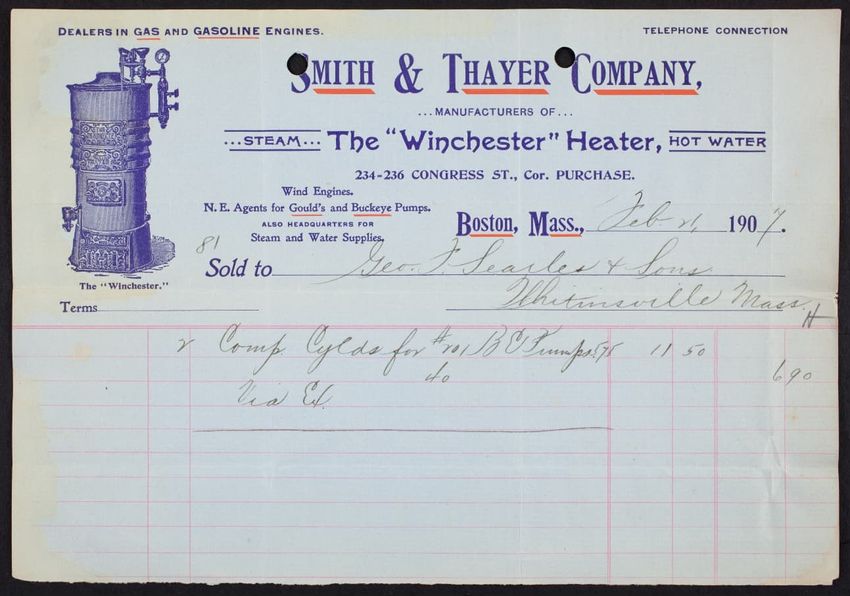 DEALERS IN GAS AND GASOLINE ENGINES.
TELEPHONE CONNECTION
SMITH & THAYER COMPANY,
...MANUFACTURERS OF...
...STEAM... The "Winchester" Heater, HOT WATER
234-236 CONGRESS ST., Cor. PURCHASE.
Wind Engines.
N. E. Agents for Gould's and Buckeye Pumps.
ALSO HEADQUARTERS FOR
Steam and Water Supplies.
The "Winchester."
Boston, Mass., Feb. 21, 1907.
81
Sold to Geo. F. Searles & Sons
Whitinsville Mass.
H
Terms
2 Comp. Cylds for #201 B Pumps 575 11 50
40 6 90
Via Ex.